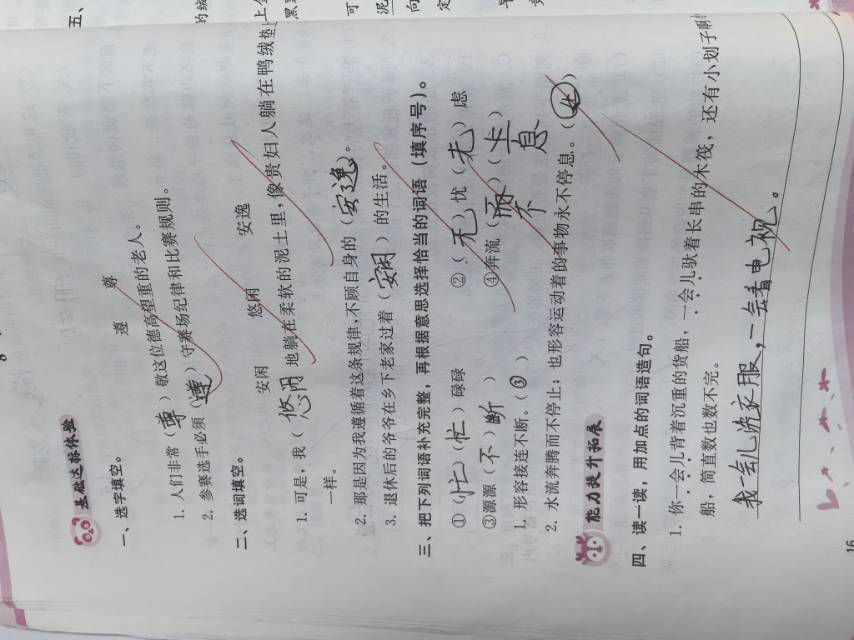 基础达标体验
一、选字填空。
遵 尊
1. 人们非常（尊）敬这位德高望重的老人。
2. 参赛选手必须（遵）守赛场纪律和比赛规则。
二、选词填空。
安闲 悠闲 安逸
1. 可是，我（悠闲）地躺在柔软的泥土里，像贵妇人躺在鸭绒垫上
一样。
2. 那是因为我遵循着这条规律，不顾自身的（安逸）。
3. 退休后的爷爷在乡下老家过着（安闲）的生活。
三、把下列词语补充完整，再根据意思选择恰当的词语（填序号）。
①（忙）（忙）碌碌 ②（无）忧（无）虑
③源源（不）断 ④奔流（不）（息）
1. 形容接连不断。（③）
2. 水流奔腾而不停止；也形容运动着的事物永不停息。（④）
能力提升拓展
四、读一读，用加点的词语造句。
1. 你一会儿背着沉重的货船，一会儿驮着长串的木筏，还有小划子啊
船，简直数也数不完。
我一会儿洗衣服，一会看电视。
16
五、